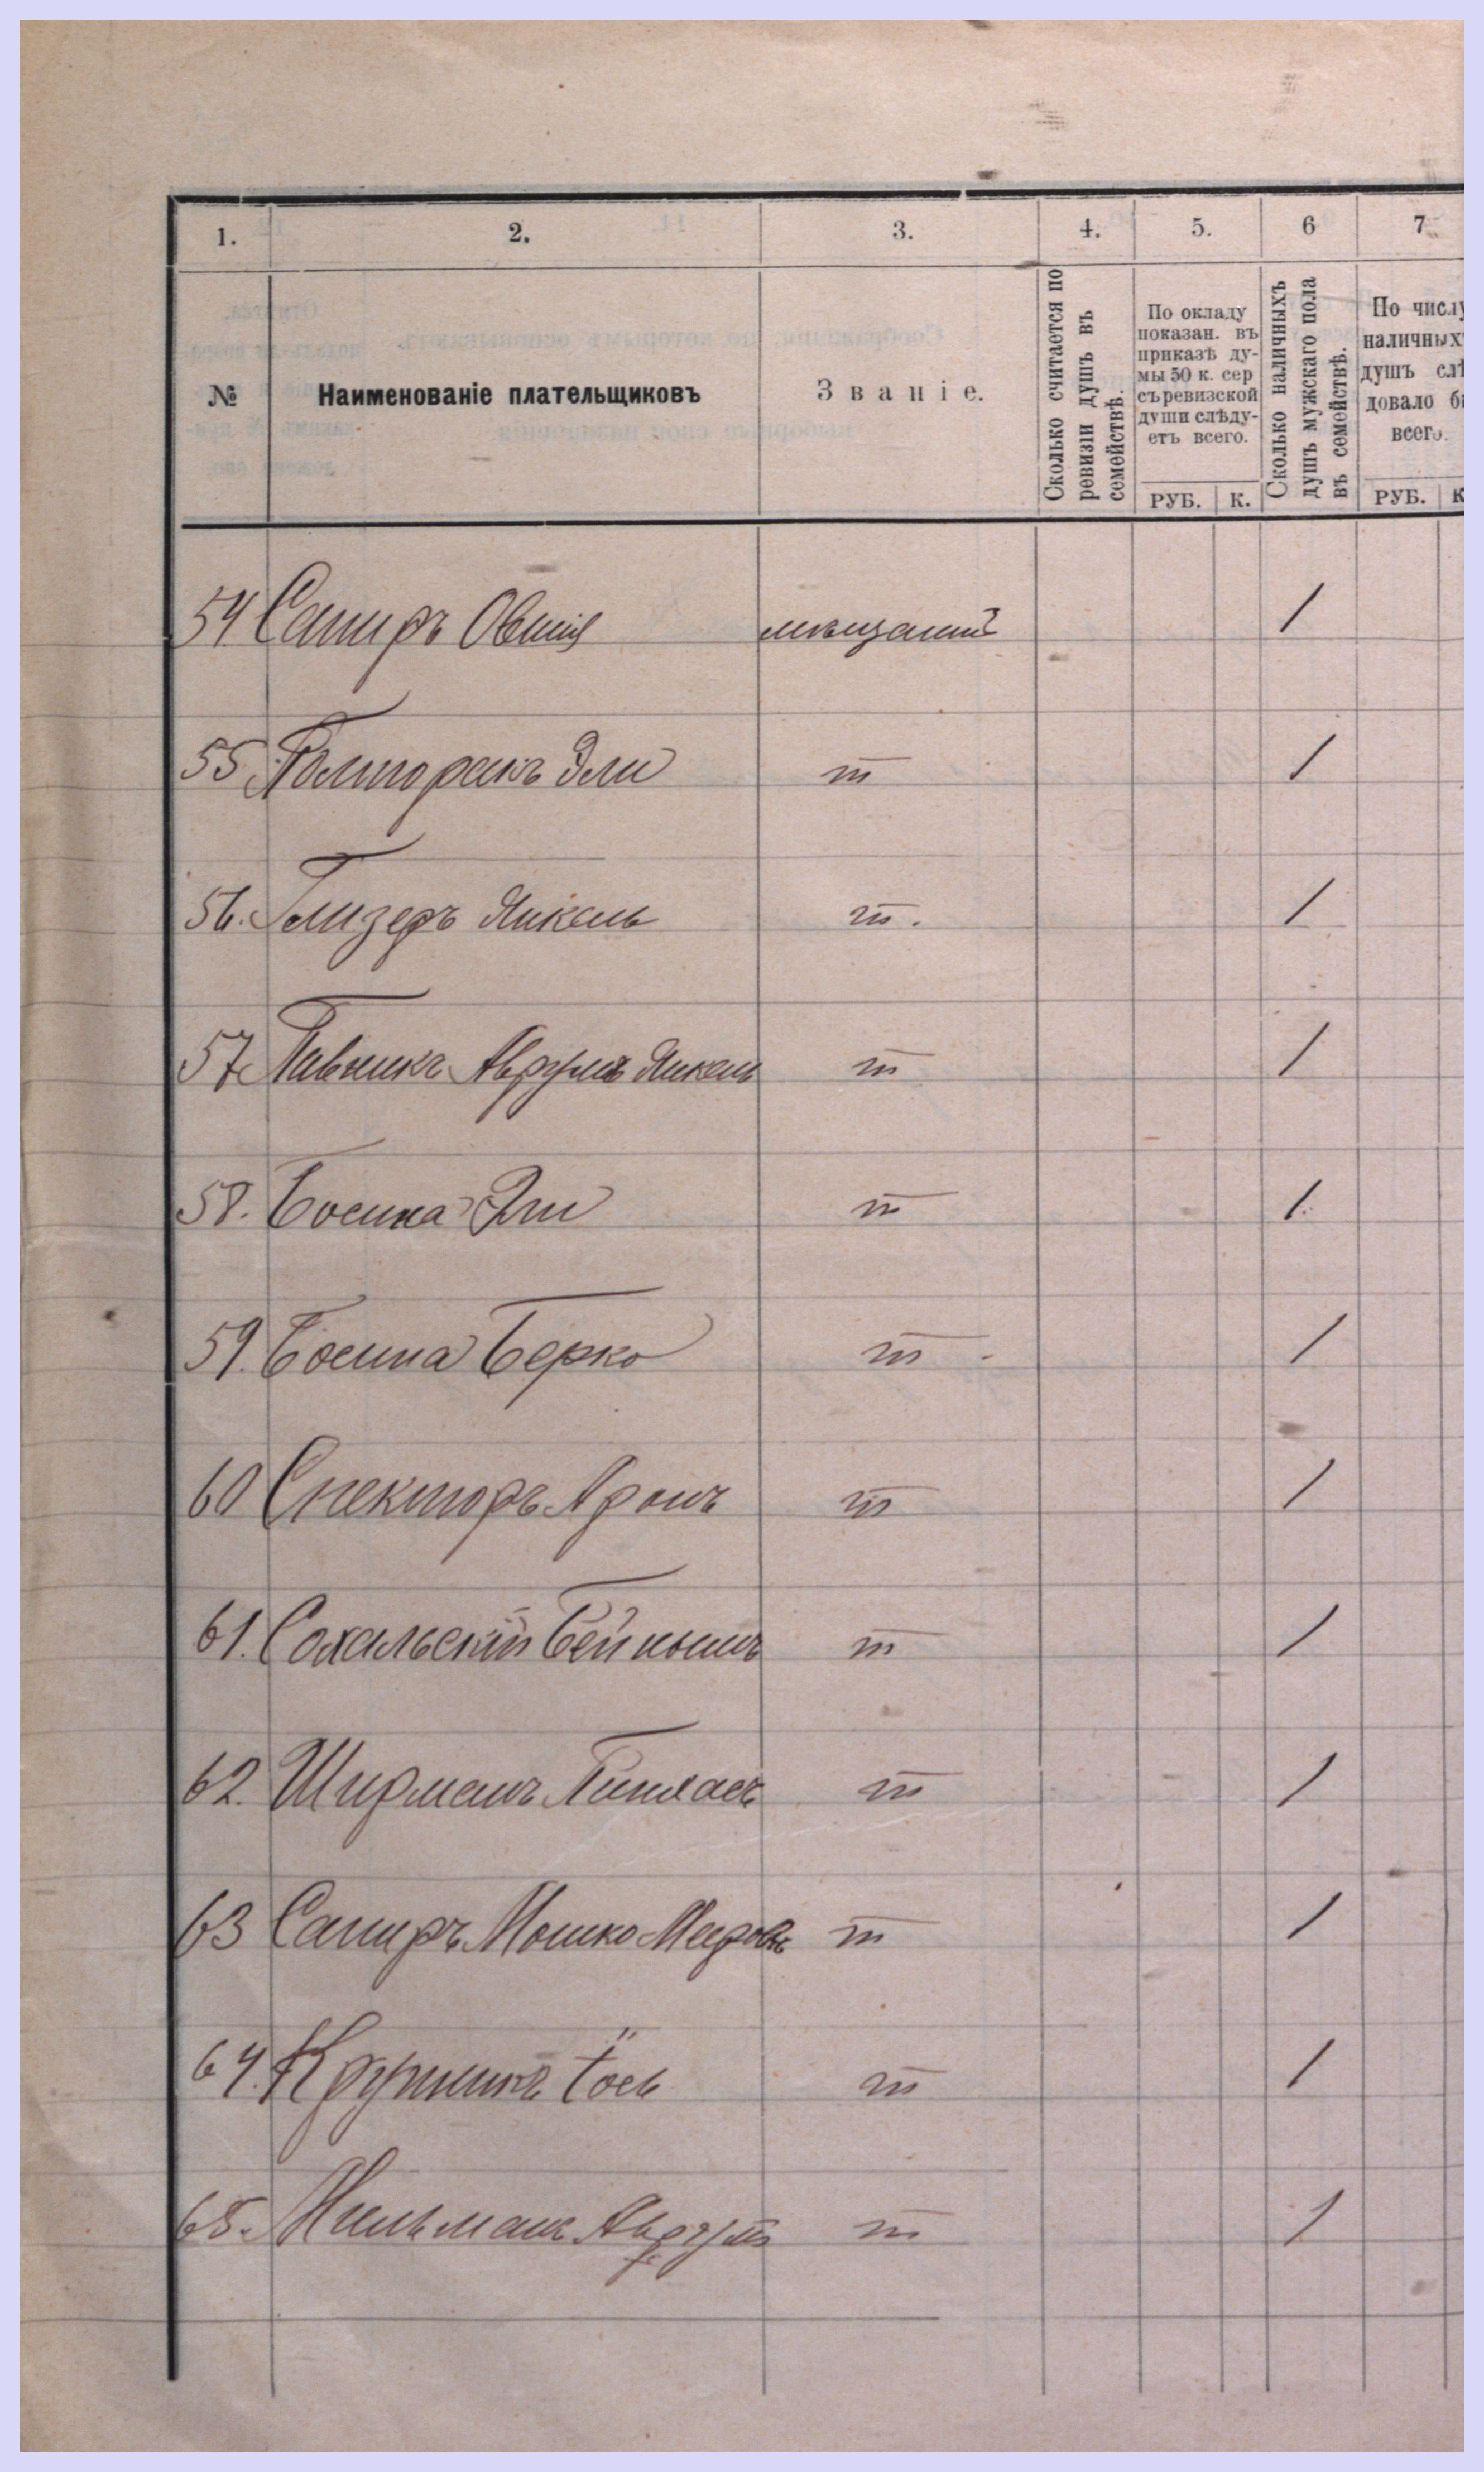 1. 2. 3. 4. 5. 6 7
№ Наименованіе плательщиковъ Званіе.
Сколько считается по
ревизіи душъ въ
семействѣ.
По окладу
показан. въ
приказѣ ду-
мы 50 к. сер
съ ревизской
души слѣду-
етъ всего.
РУБ. К.
Сколько наличныхъ
душъ мужскаго пола
въ семействѣ.
По числу
наличных
душъ слѣ
довало б
всего.
РУБ. К
54 Сапиръ Овшія мѣщанин 1
55 Полторакъ Эли т 1
56. Глизеръ Янкель т. 1
57 Пивникъ Аврумъ Янкель т 1
58. Босина Эли т 1.
59. Босина Берко т 1
60 Спекторъ Аронъ т 1
61. Сохальскій Бейнышъ т 1
62. Ширманъ Пинхасъ т 1
63 Сапиръ Мошко Мееровъ т 1
64. Крупникъ Іось т 1
65. Аврумъ т 1